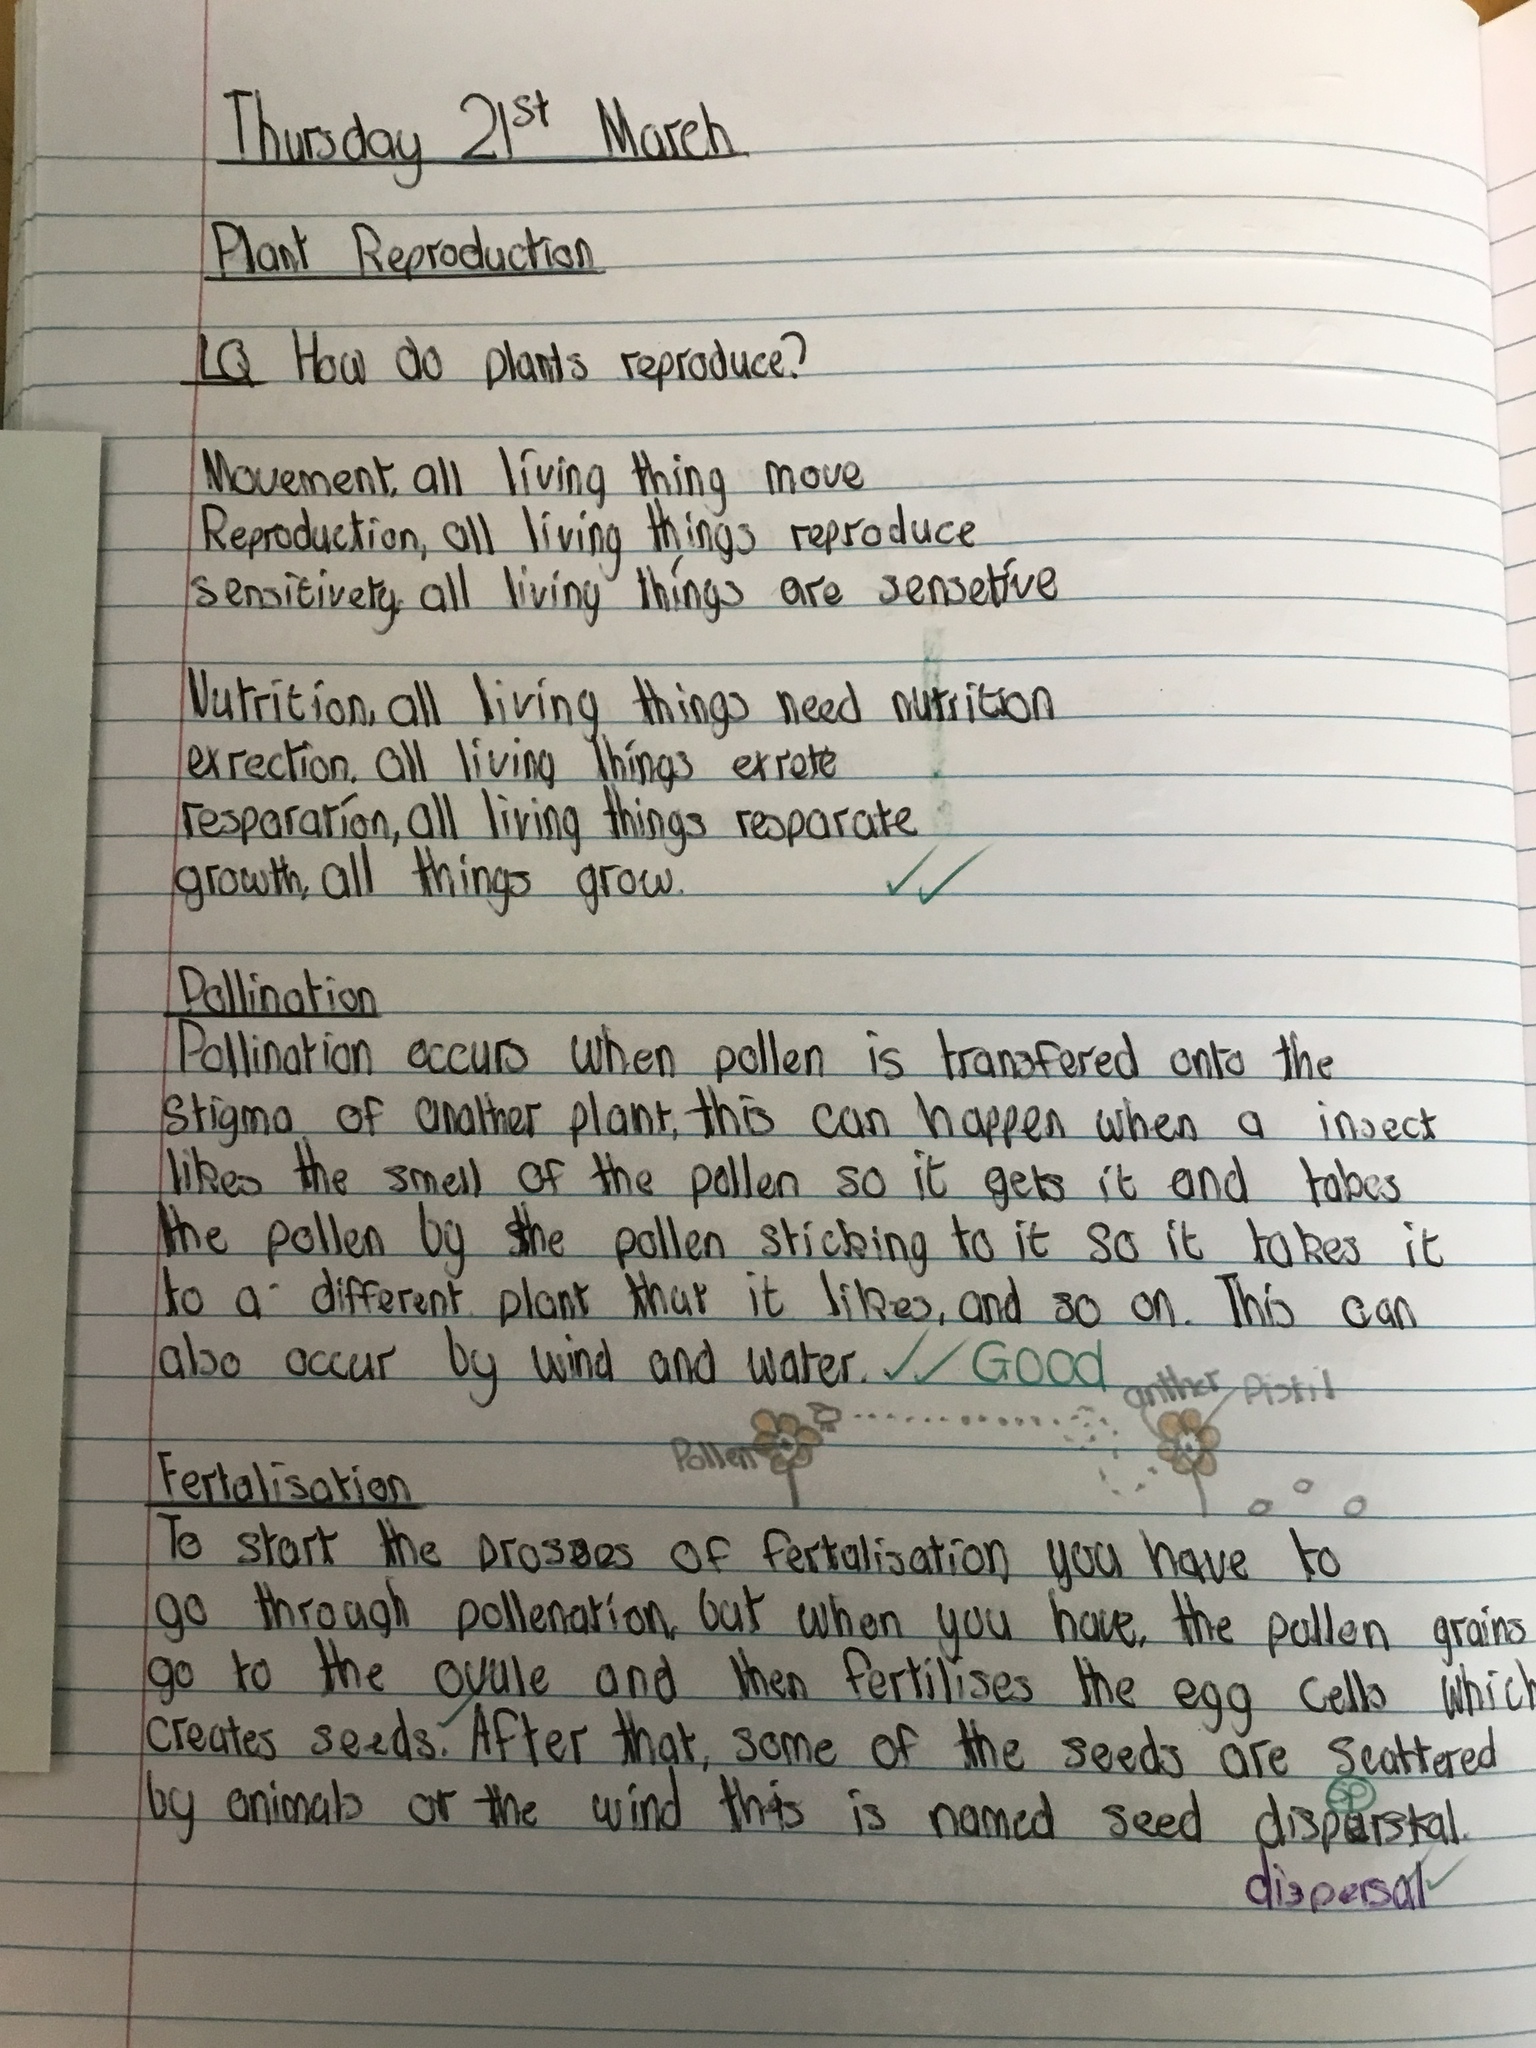 Thursday 21st March
Plant Reproduction
LQ How do plants reproduce?
Movement, all living thing move
Reproduction, all living things reproduce
sensitivety, all living things are sensetive
Nutrition, all living things need nutrition
exrection, all living things exrete
resparation, all living things resparate
growth, all things grow.
Pollination
Pollination occurs when pollen is transfered onto the
stigma of another plant, this can happen when a insect
likes the smell of the pollen so it gets it and takes
the pollen by the pollen sticking to it so it takes it
to a different plant that it likes, and so on. This can
also occur by wind and water. ✓✓ Good
anther Pistil
Pollen
Fertalisation
To start the prosses of fertalisation, you have to
go through pollenation, but when you have, the pollen grains
go to the ovule and then fertilises the egg cells which
creates seeds. After that, some of the seeds are scattered
by animals or the wind this is named seed disperstal.
sp
dispersal